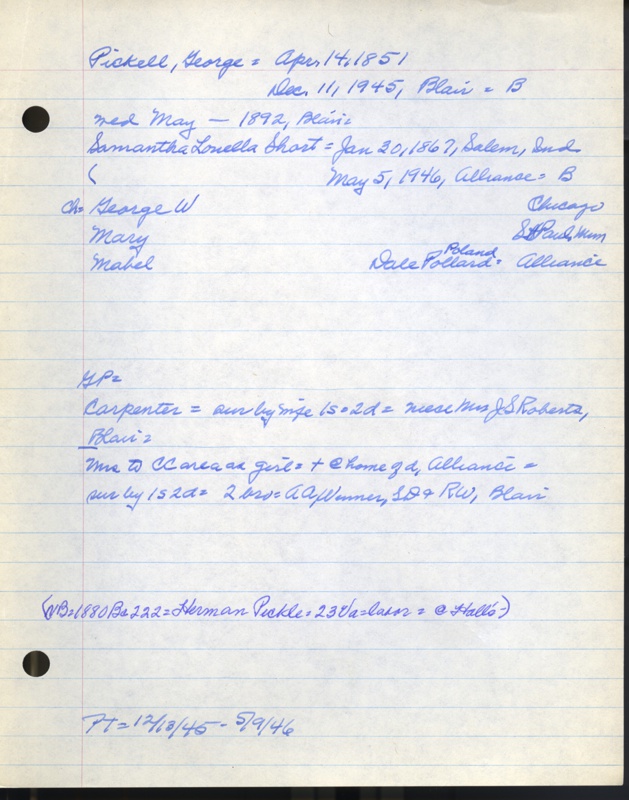 Pickell, George = Apr. 14, 1851
Dec. 11, 1945, Blair = B
wed May — 1892, Blair=
Samantha Louella Short = Jan 20, 1867, Salem, Ind.
( May 5, 1946, Alliance = B
ch= George W Chicago
Mary St Paul, Minn
Poland
Mabel Dale Pollard = Alliance
GP=
Carpenter = sur by wife 1s·2d = niece Mrs J S Roberts,
Blair=
Mrs to CC area as girl = + @ home of d, Alliance =
sur by 1s 2d = 2 bro = A A, Winner, SD + RW, Blair
(NB=1880 B 222 = Herman Pickle = 23 Va = labor = @ Halls =)
PT = 12/13/45 - 5/9/46